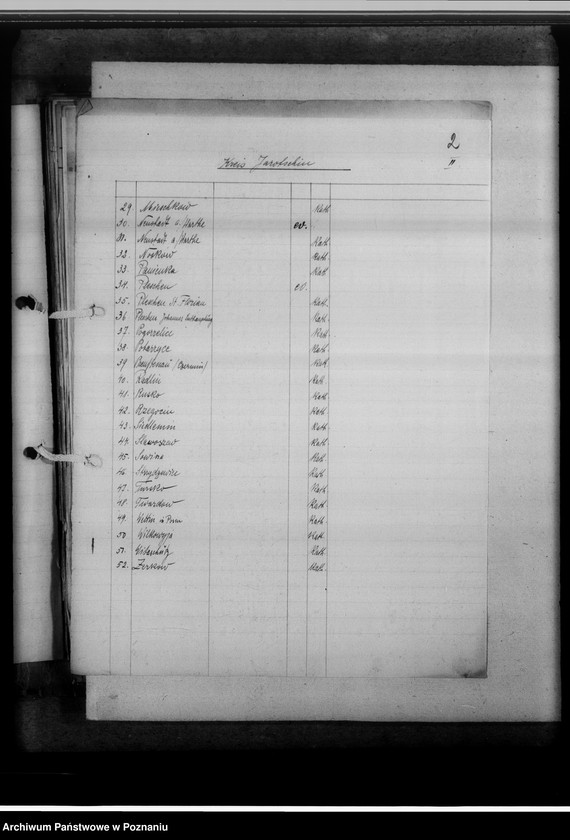 2
"
Kreis Jarotschin
29 Morschkow Kath
30. Neustadt a./Warthe ev.
31. Neustadt a./Warthe Kath
32. Noskow Kath
33. Panienka Kath
34. Pleschen ev.
35. Pleschen St Florian Kath
36 Pleschen Johannes Kath
37. Pogorzelice Kath
38. Potarzyce Kath
39 (Czermin) Kath
40. Radlin Kath
41. Rusko Kath
42. Rzegocin Kath
43. Siedlemin Kath
44. Slawoszew Kath
45. Sowina Kath
46 Strydzewice Kath
47. Tursko Kath
48. Twardow Kath
49. Kath
50 Wilkowyja Kath.
51. Witaschütz Kath
52. Zerkow Kath.
Archiwum Państwowe w Poznaniu